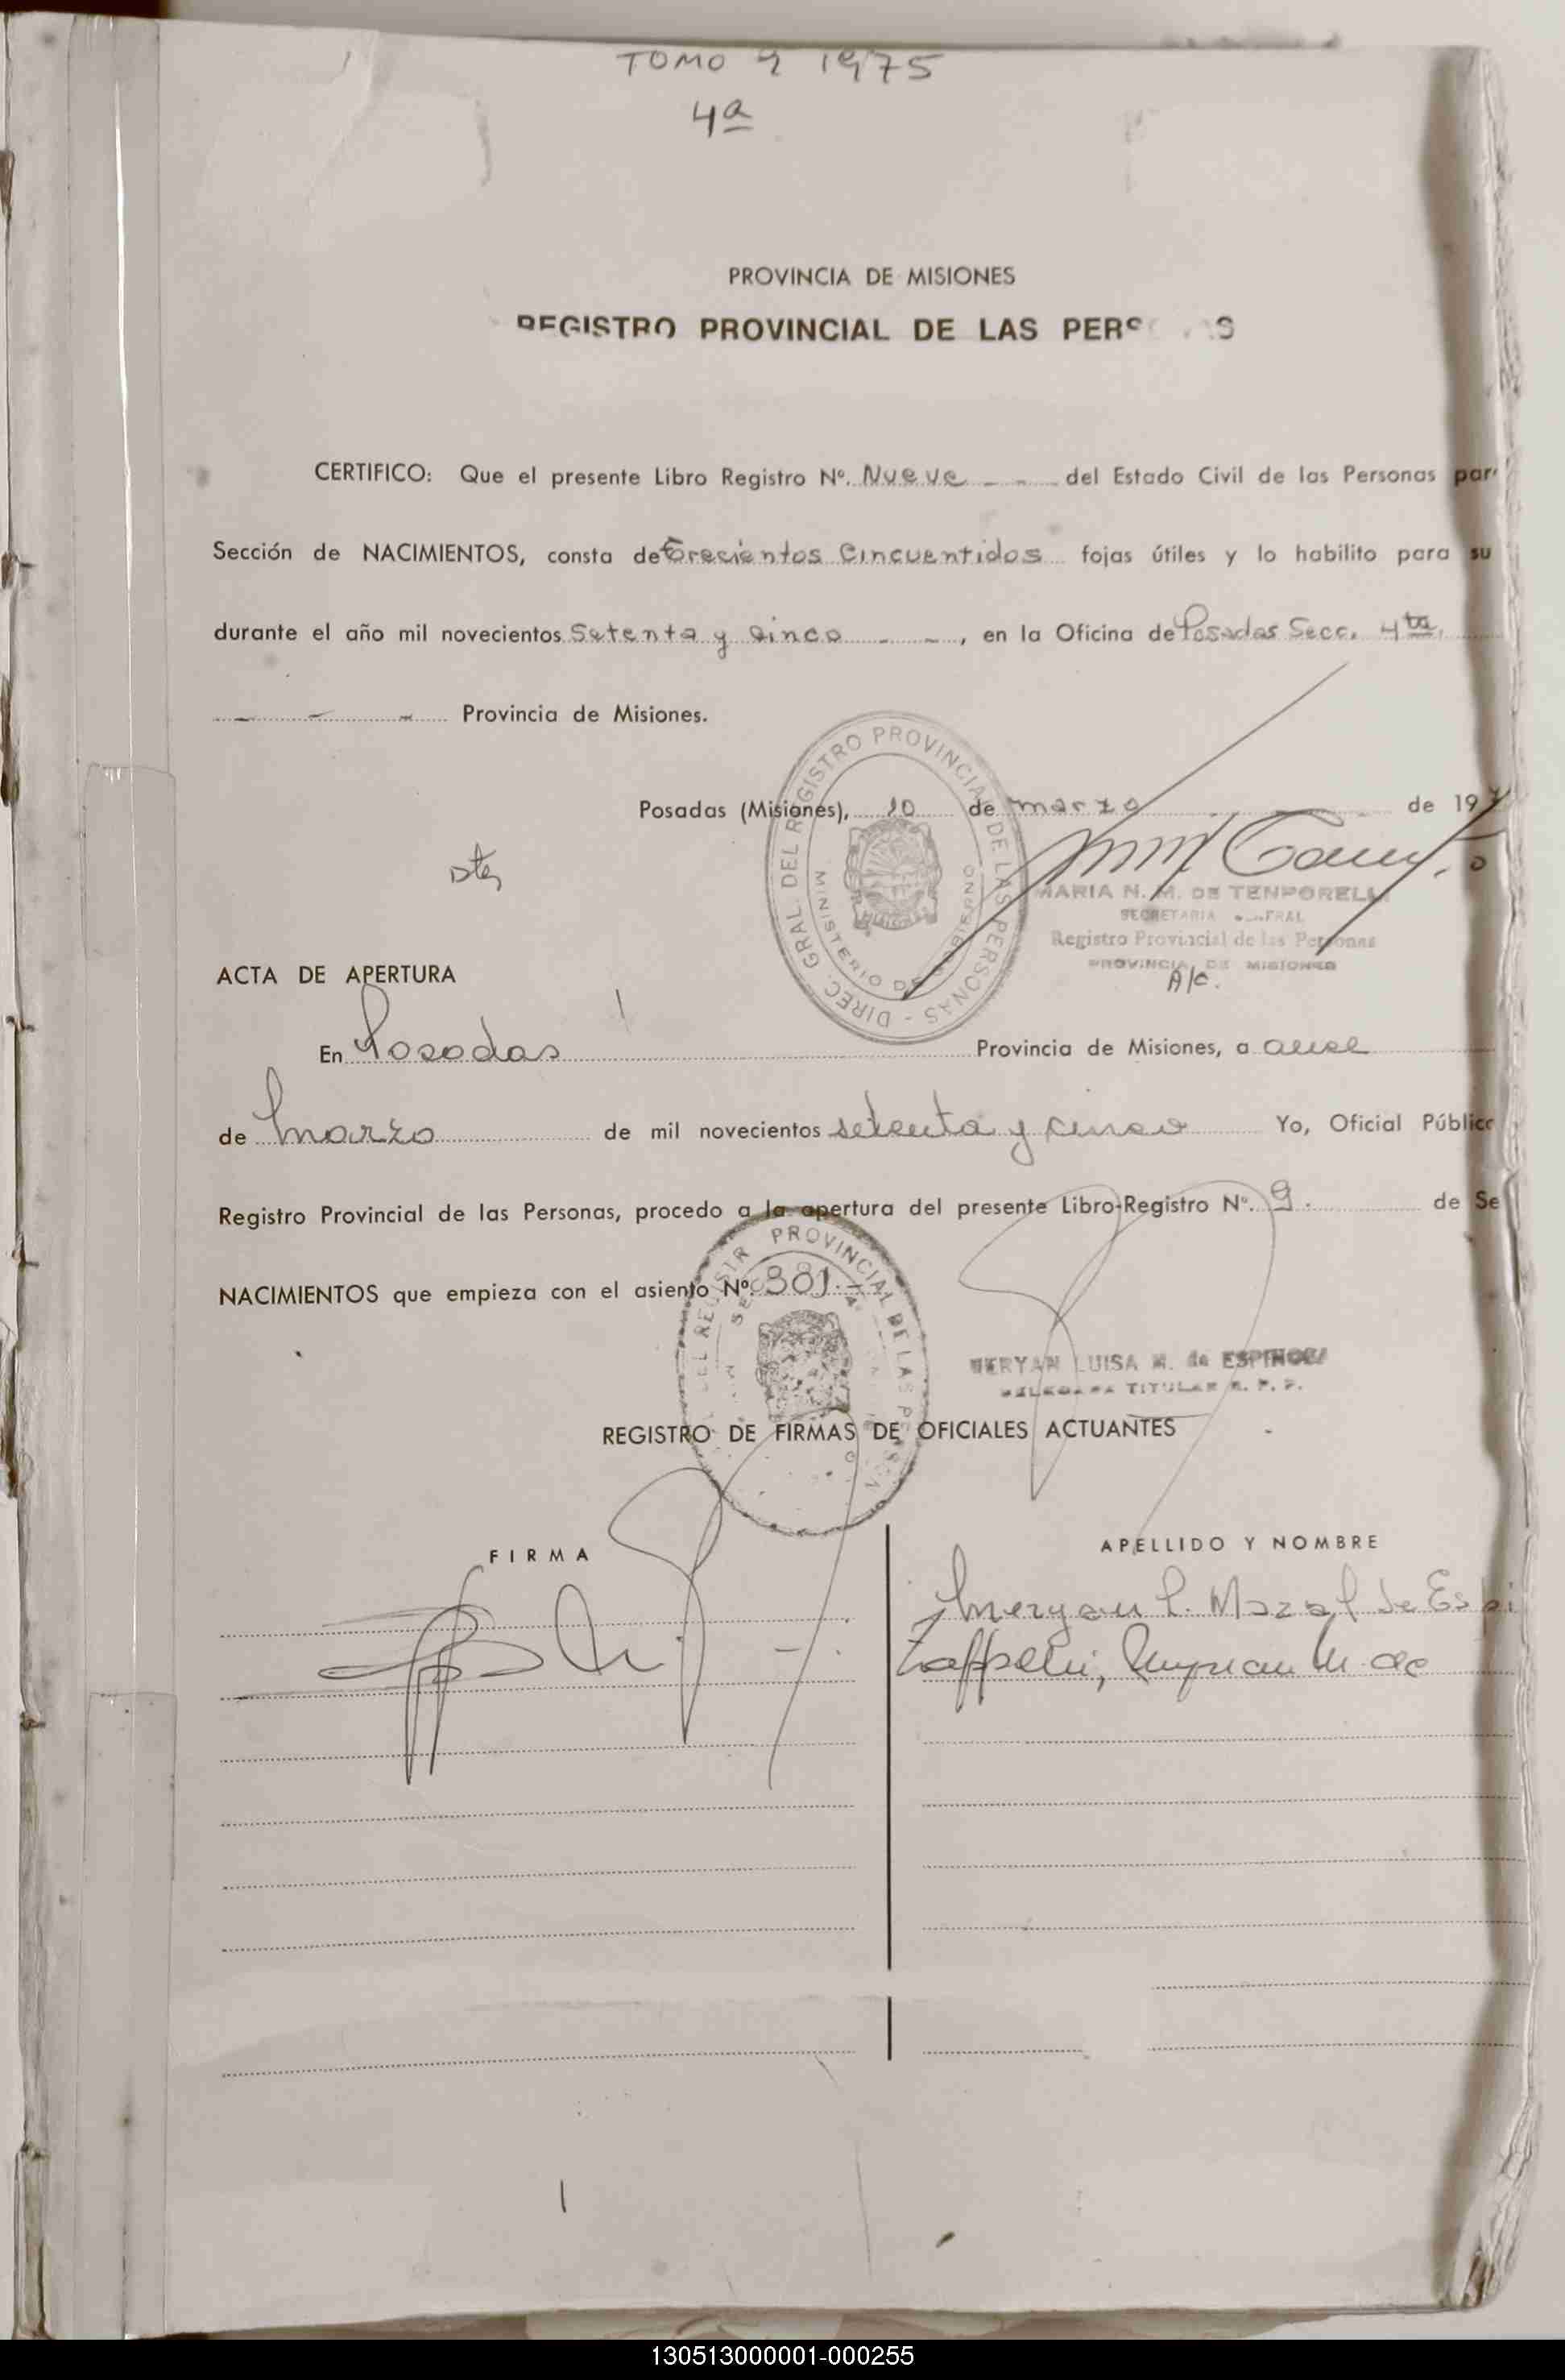 TOMO 9 1975
4ª
PROVINCIA DE MISIONES
REGISTRO PROVINCIAL DE LAS PERS AS
CERTIFICO: Que el presente Libro Registro Nº. Nueve - - del Estado Civil de las Personas par
Sección de NACIMIENTOS, consta de trecientos cincuentidos fojas útiles y lo habilito para su
durante el año mil novecientos setenta y cinco - - , en la Oficina de Posadas Secc. 4ta.
- - - Provincia de Misiones.
Posadas (Misiones), 10 de marzo de 197
DIREC. GRAL. DEL REGISTRO PROVINCIAL DE LAS PERSONAS -
MINISTERIO DE GOBIERNO
MARIA N. M. DE TENPORELLI
SECRETARIA GENERAL
Registro Provincial de las Personas
PROVINCIA DE MISIONES
A/c.
ACTA DE APERTURA
En Posadas Provincia de Misiones, a once
de marzo de mil novecientos setenta y cinco Yo, Oficial Público
Registro Provincial de las Personas, procedo a la apertura del presente Libro-Registro Nº. 9. de Se
NACIMIENTOS que empieza con el asiento Nº 801.-
PROVINCIAL DE LAS
MERYAN LUISA M. de ESPINOZA
DELEGADA TITULAR R. P. P.
REGISTRO DE FIRMAS DE OFICIALES ACTUANTES
FIRMA
APELLIDO Y NOMBRE
Meryan L. Mazal de Espi
Zappelli, M. de
130513000001-000255